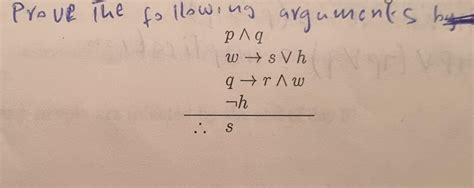 Prove The following arguments by
p ∧ q
w → s ∨ h
q → r ∧ w
¬h
∴ s